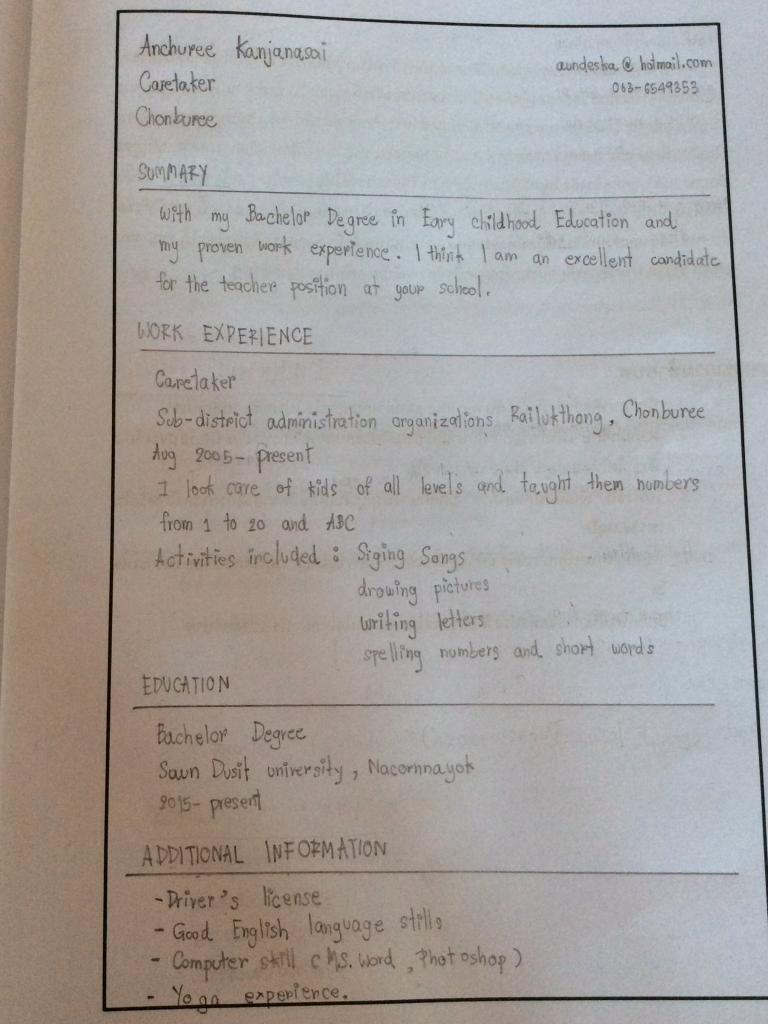 Anchuree Kanjanasai
aundeska@hotmail.com
Caretaker
063-6549353
Chonburee
SUMMARY
With my Bachelor Degree in Eary childhood Education and
my proven work experience. I think I am an excellent candidate
for the teacher position at your school.
WORK EXPERIENCE
Caretaker
Sub-district administration organizations Railukthong, Chonburee
Aug 2005- present
I look care of kids of all levels and taught them numbers
from 1 to 20 and ABC
Activities included : Siging Songs
drowing pictures
writing letters
spelling numbers and short words
EDUCATION
Bachelor Degree
Saun Dusit university, Nacornnayok
2015- present
ADDITIONAL INFORMATION
- Driver's license
- Good English language stills
- Computer skill (MS. Word, Photoshop)
- Yoga experience.